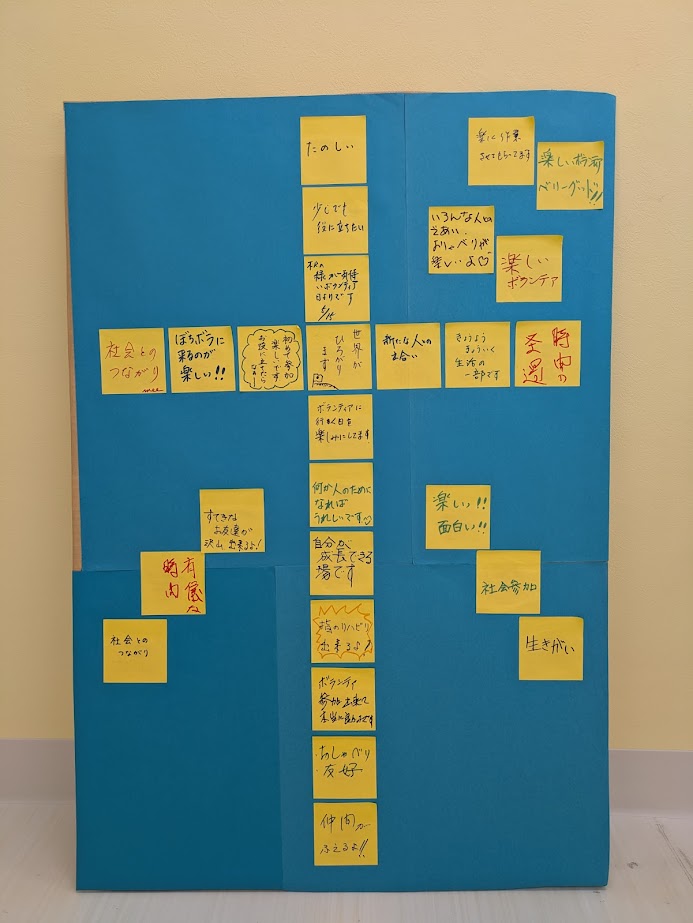 たのしい
少しでも
役に立ちたい
楽しく作業
させてもらってます
楽しいボラ
ベリーグッド!!
いろんな人との
であい、
おしゃべりが、
楽しいよ♡
楽しい
ボランティア
社会との
つながり
ぼちボラに
来るのが
楽しい!!
初めて参加
楽しいです
お役に立てたら
なぁー
世界が
ひろがり
ます
新たな人の
出合い
きょうよう
きょういく
生活の
一部です
時由の
ボランティアに
行く日を
楽しみにしてます
何か人のために
なれば
うれしいです♡
自分が
成長できる
場です
すてきな
お友達が
沢山出来るよ!
楽しい!!
面白い!!
有儀な
時内
社会参加
社会との
つながり
生きがい
脳のリハビリ
出来るよ!
ボランティア
参加出来て
・おしゃべり
・友好
仲間が
ふえるよ!!